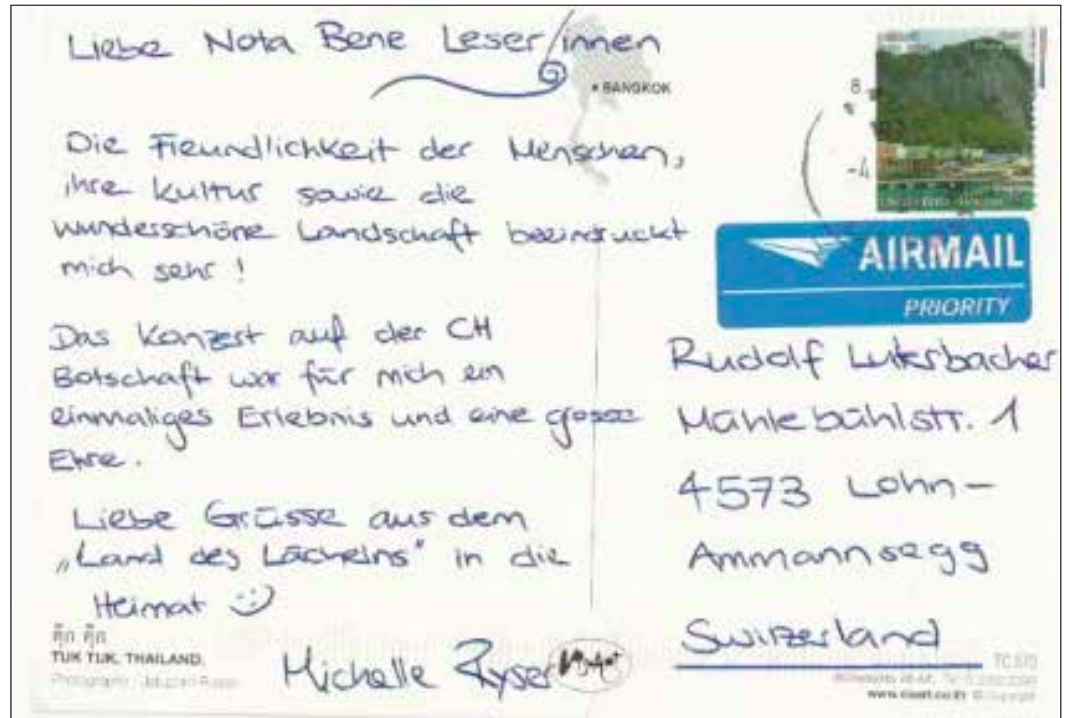 Liebe Nota Bene Leser/innen
• BANGKOK
Die Freundlichkeit der Menschen,
ihre Kultur sowie die
wunderschöne Landschaft beeindruckt
mich sehr!
Das Konzert auf der CH
Botschaft war für mich ein
einmaliges Erlebnis und eine grosse
Ehre.
Liebe Grüsse aus dem
„Land des Lächelns" in die
Heimat :)
ตุ๊ก ตุ๊ก
TUK TUK, THAILAND.
Michelle Ryser
8
-4
AIRMAIL
PRIORITY
Rudolf Luterbacher
Mühlebühlstr. 1
4573 Lohn-
Ammannsegg
Switzerland
TC 570